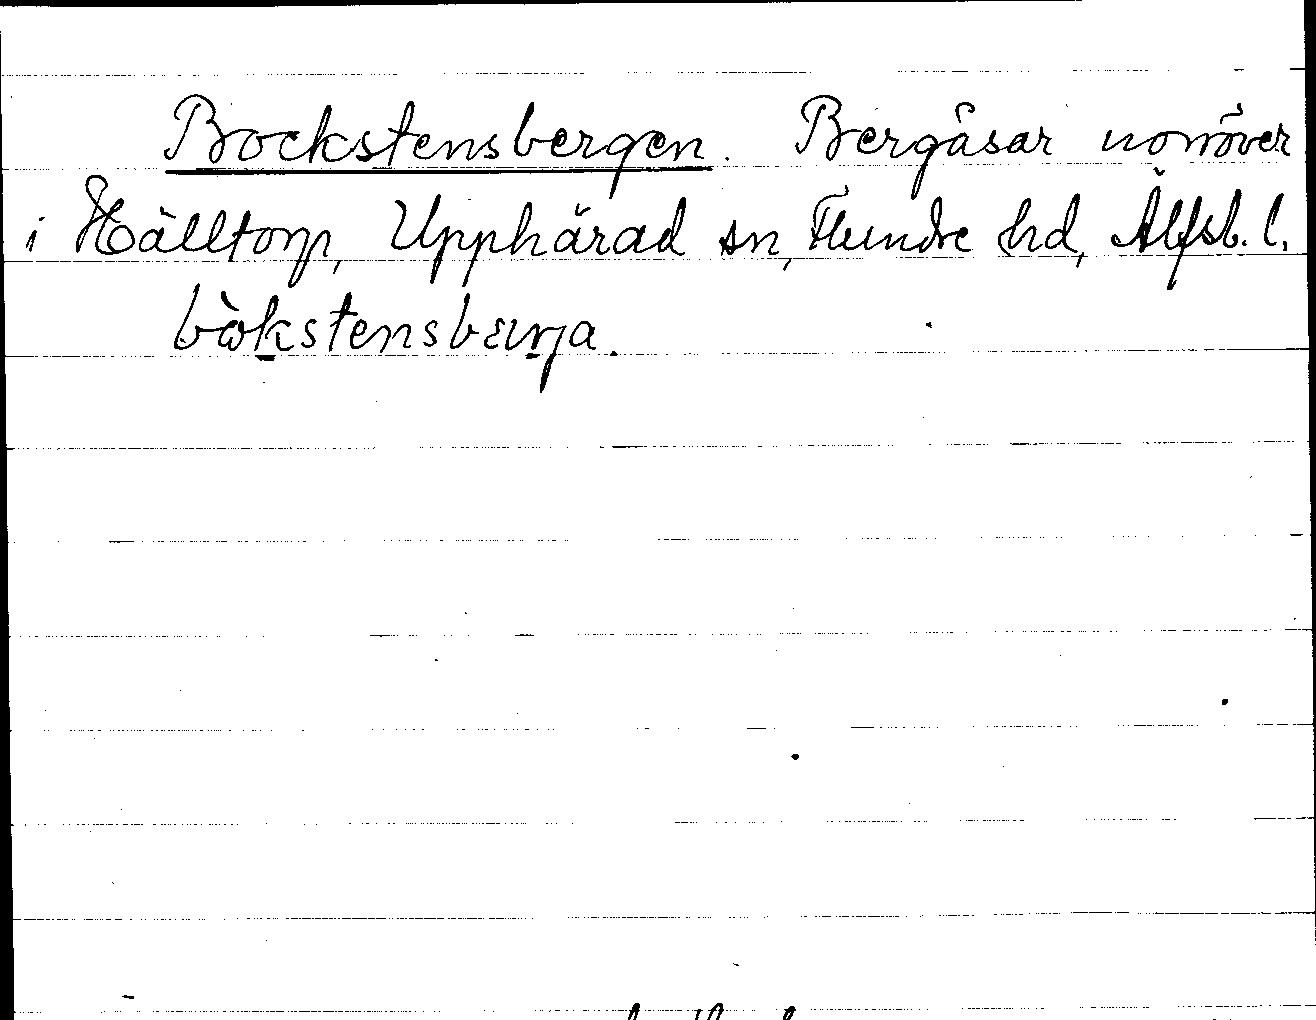 Bockstensbergen. Bergåsar norröver
i Hälltorp, Upphärad sn, Flundre hd, Älfsb. l.